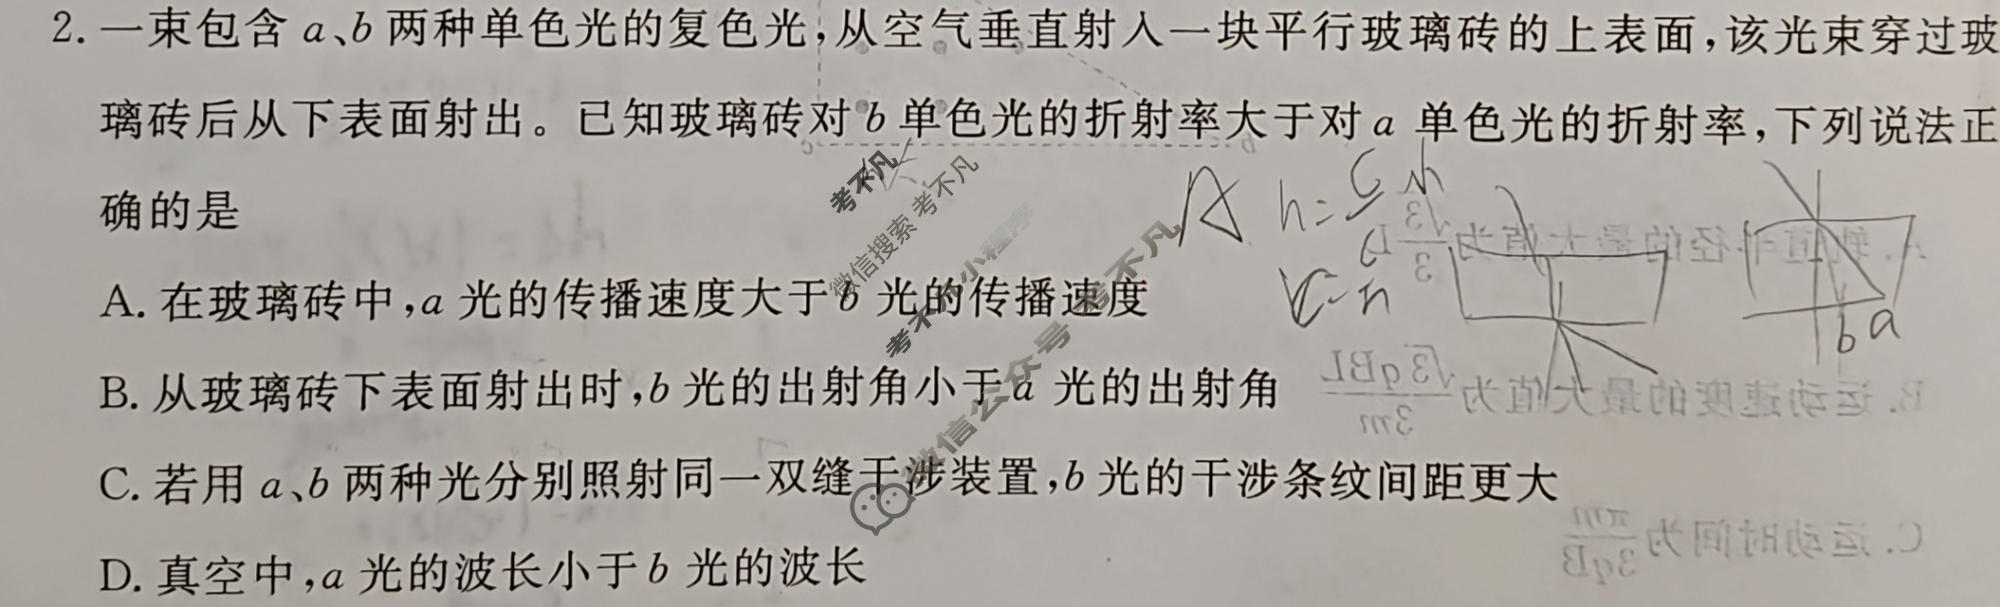 2. 一束包含 a、b 两种单色光的复色光,从空气垂直射入一块平行玻璃砖的上表面,该光束穿过玻
璃砖后从下表面射出。已知玻璃砖对 b 单色光的折射率大于对 a 单色光的折射率,下列说法正
确的是
A. 在玻璃砖中,a 光的传播速度大于 b 光的传播速度
B. 从玻璃砖下表面射出时,b 光的出射角小于 a 光的出射角
C. 若用 a、b 两种光分别照射同一双缝干涉装置,b 光的干涉条纹间距更大
D. 真空中,a 光的波长小于 b 光的波长
A
b a
考不凡
微信搜索 考不凡
考不凡小程序
微信公众号 考不凡